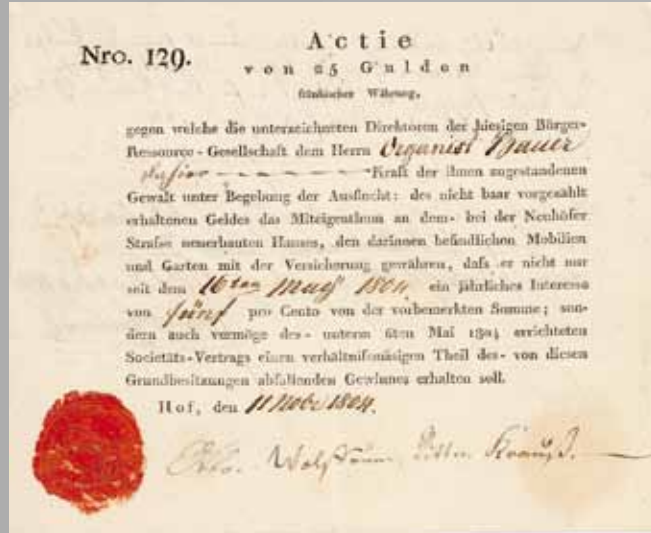 Nro. 129.
Actie
von 25 Gulden
fränkischer Währung,
gegen welche die unterzeichneten Direktoren der hiesigen Bürger-
Ressource-Gesellschaft dem Herrn Organist Bauer
dahier Kraft der ihnen zugestandenen
Gewalt unter Begebung der Ausflucht: des nicht baar vorgezählt
erhaltenen Geldes das Miteigenthum an dem- bei der Neuhöfer
Strasse neuerbauten Hauses, den darinnen befindlichen Mobilien
und Garten mit der Versicherung gewähren, dafs er nicht nur
seit dem 16ten May 1804 ein jährliches Interesse
von fünf pro Cento von der vorbemerkten Summe; son-
dern auch vermöge des- unterm 6ten Mai 1804 errichteten
Societäts-Vertrags einen verhältnifsmäsigen Theil des- von diesen
Grundbesitzungen abfallenden Gewinnes erhalten soll.
Hof, den 11 Nobr 1804.
Krauß.